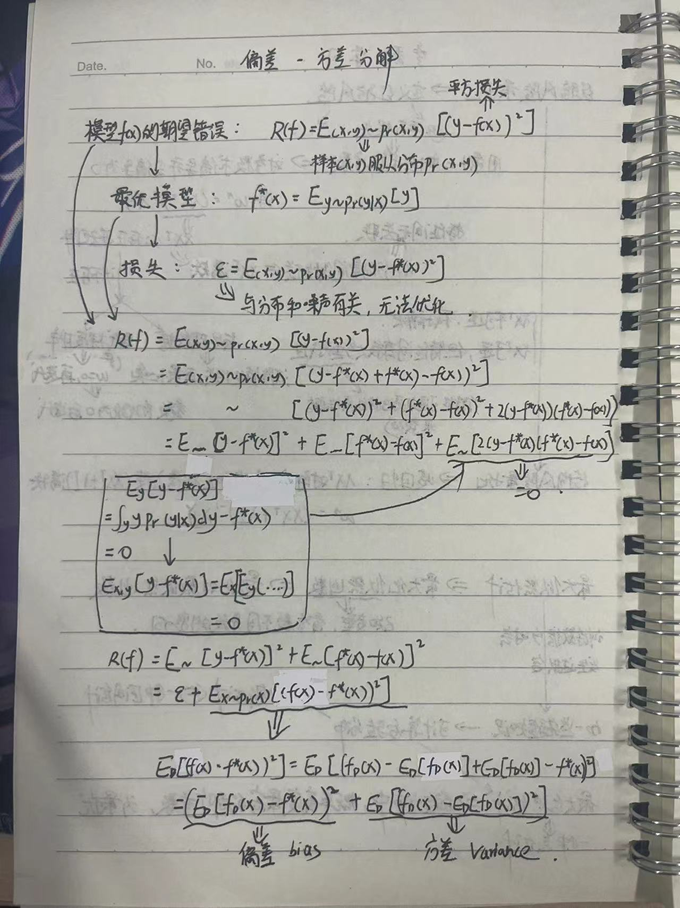 Date. No. 偏差 - 方差分解
平方损失
模型f(x)的期望错误: R(f)=E(x,y)~pr(x,y) [(y-f(x))²]
样本(x,y)服从分布pr(x,y)
最优模型: f*(x)=Ey~pr(y|x)[y]
损失: ε=E(x,y)~pr(x,y)[(y-f*(x))²]
与分布和噪声有关,无法优化.
R(f)=E(x,y)~pr(x,y) [(y-f(x))²]
=E(x,y)~pr(x,y) [(y-f*(x)+f*(x)-f(x))²]
= ~ [(y-f*(x))²+(f*(x)-f(x))²+2(y-f*(x))(f*(x)-f(x))]
=E~[y-f*(x)]²+E~[f*(x)-f(x)]²+E~[2(y-f*(x)(f*(x)-f(x)]
=0.
Ey[y-f*(x)]
=∫y y pr(y|x)dy-f*(x)
=0
Ex,y[y-f*(x)]=Ex[Ey(...)]
=0
R(f)=E~[y-f*(x)]²+E~[f*(x)-f(x)]²
=ε+Ex~pr(x)[(f(x)-f*(x))²]
ED[f(x)-f*(x))²]=ED[(fD(x)-ED[fD(x)]+ED[fD(x)]-f*(x)²]
=(ED[fD(x)-f*(x))²+ED[[fD(x)-ED[fD(x)])²]
偏差 bias 方差 Variance.